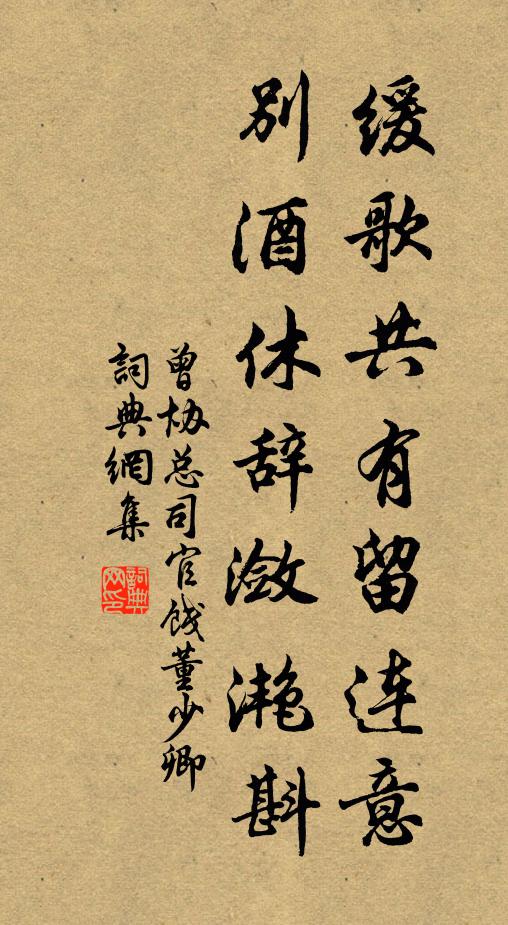 缓歌共有留连意
别酒休辞潋滟斟
曾协总司官饯董少卿
詞典網集
詞典
网印